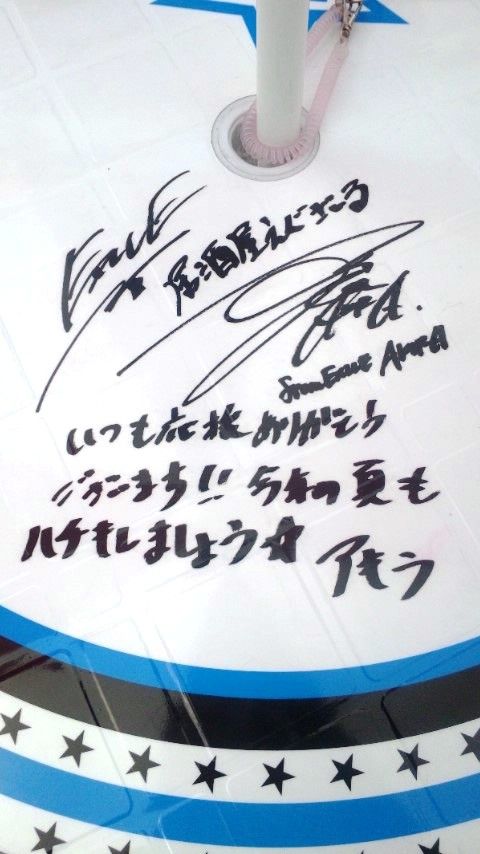 EXILE
居酒屋えぐざいる
AKIRA.
from EXILE AKIRA
いつも応援ありがとう
ございます!! 今年の夏も
ハチもしましょう☆
アキラ